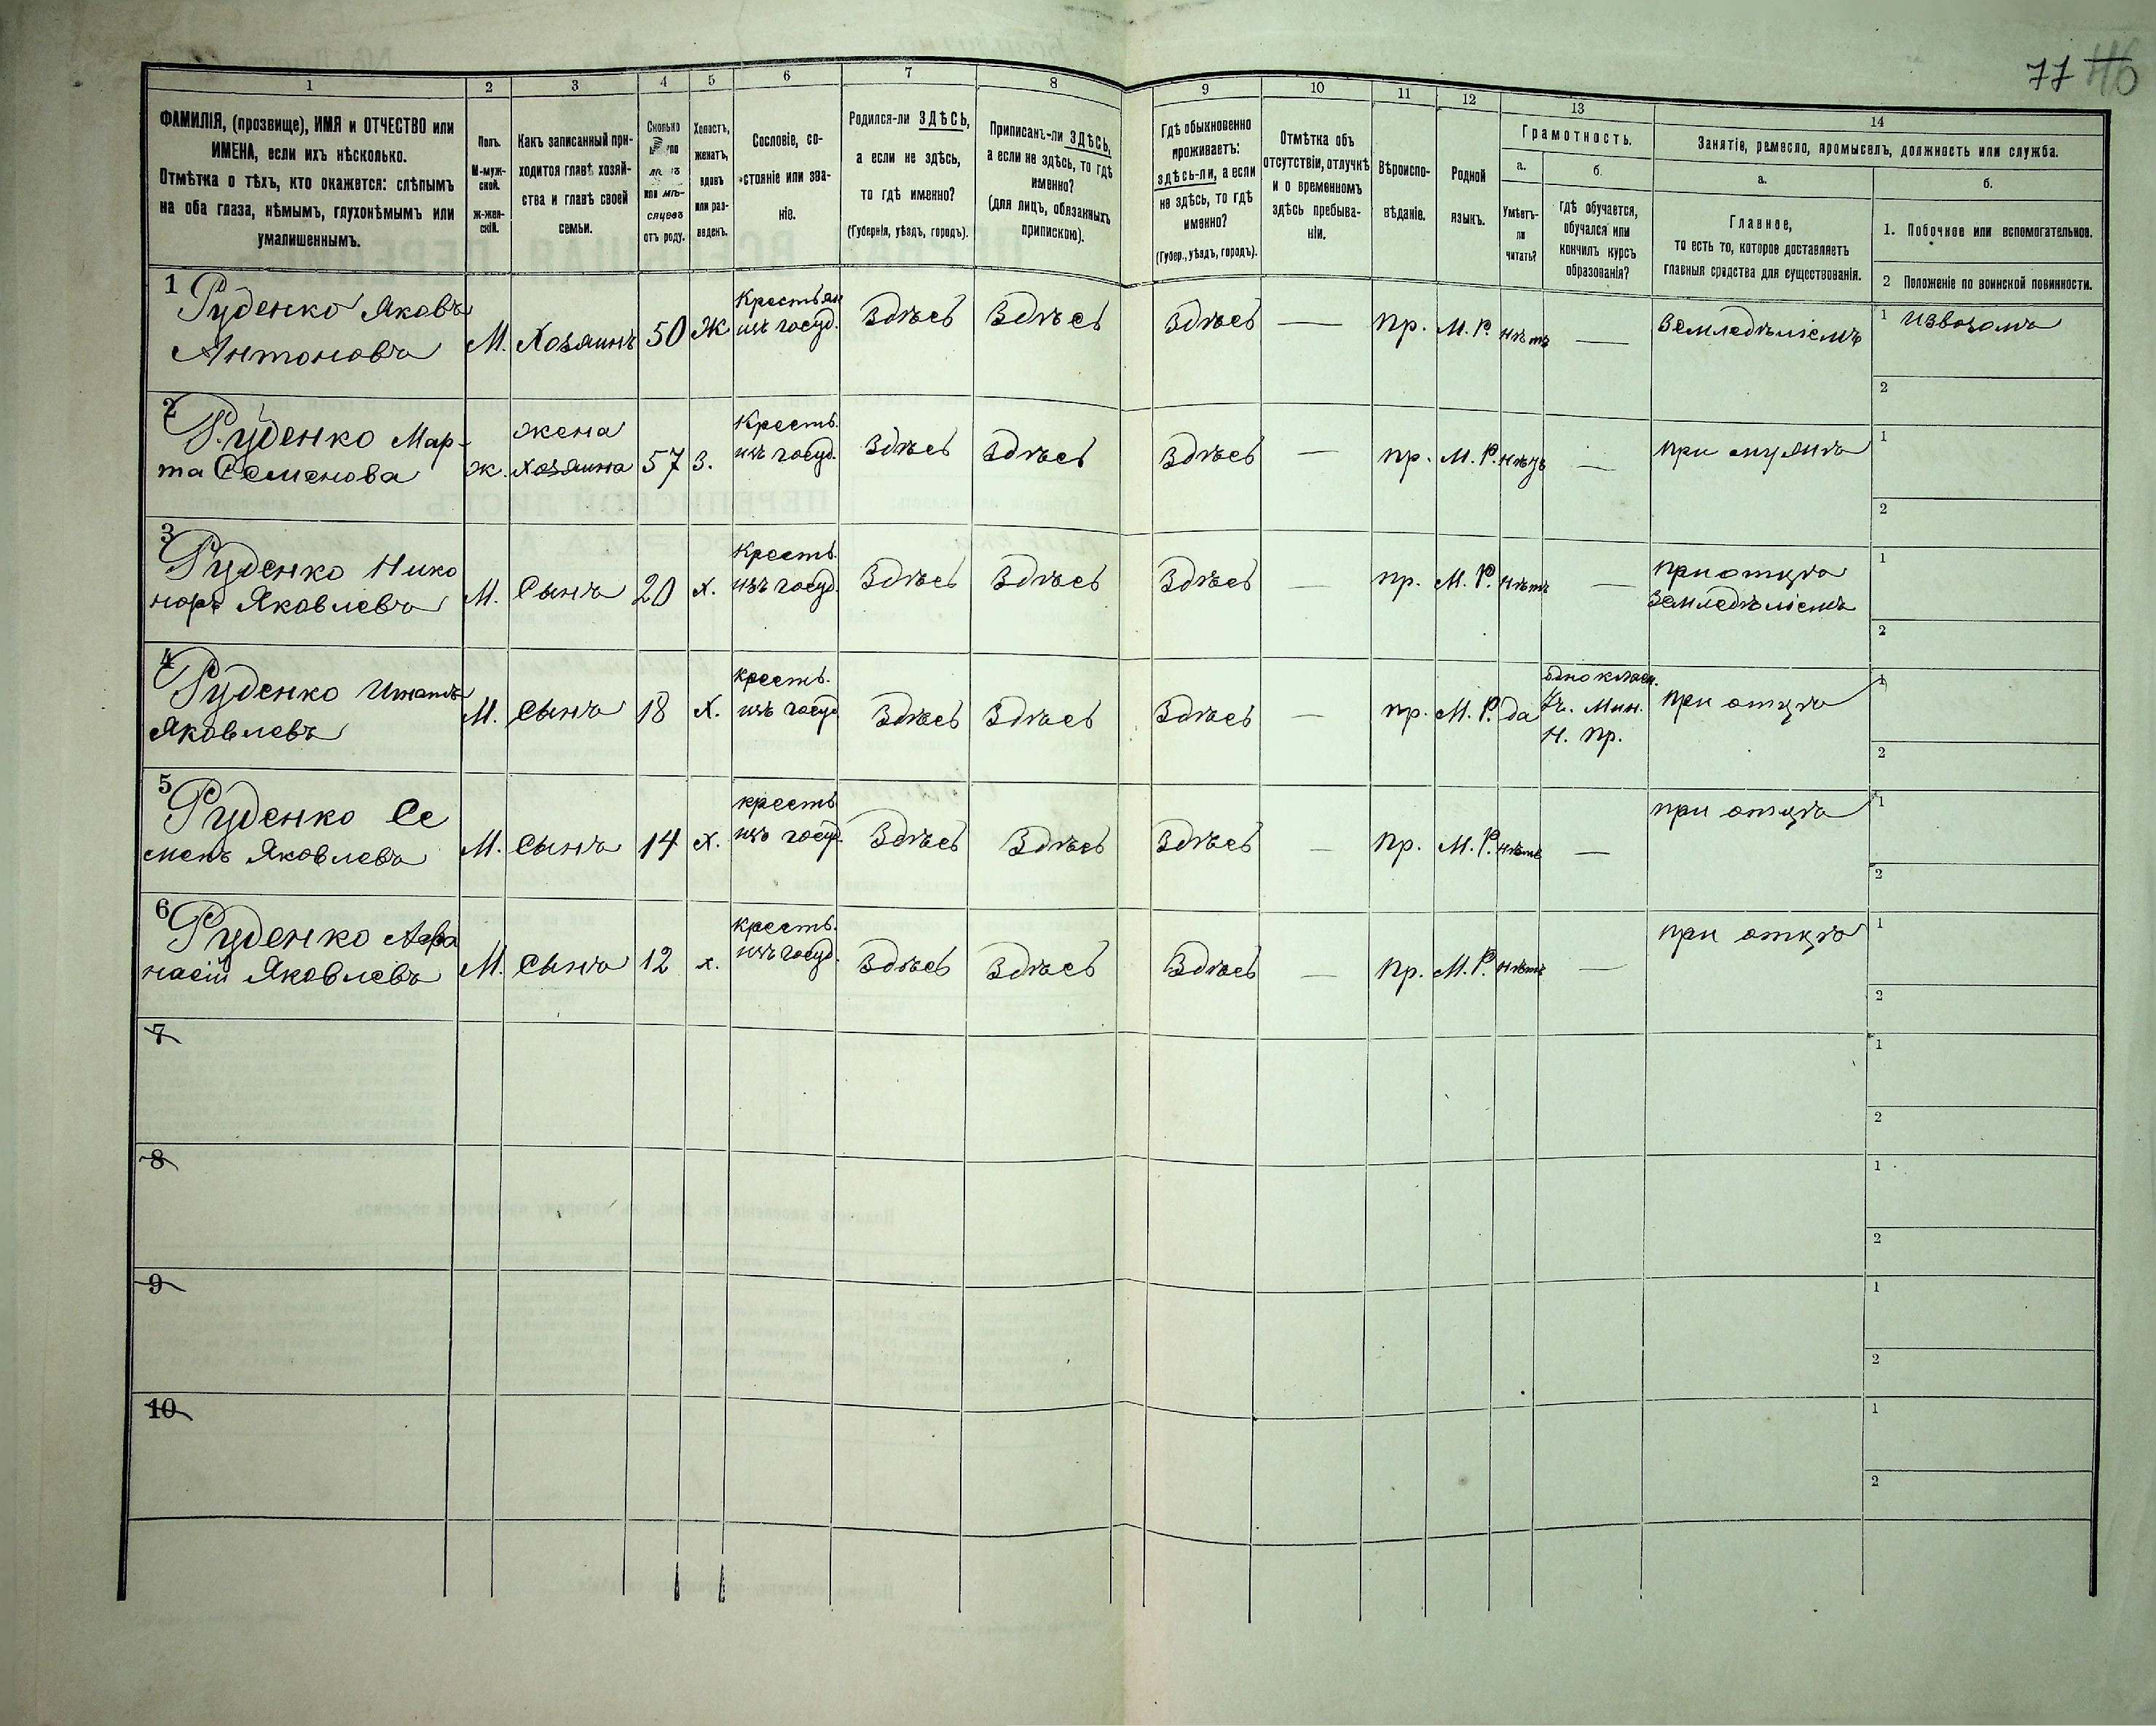 77 116
1
2
3
4
5
6
7
8
9
10
11
12
13
14
ФАМИЛІЯ, (прозвище), ИМЯ и ОТЧЕСТВО или
ИМЕНА, если ихъ нѣсколько.
Отмѣтка о тѣхъ, кто окажется: слѣпымъ
на оба глаза, нѣмымъ, глухонѣмымъ или
умалишеннымъ.
Полъ.
М-муж-
ской.
ж-жен-
скій.
Какъ записанный при-
ходится главѣ хозяй-
ства и главѣ своей
семьи.
Сколько
или мѣ-
сяцевъ
отъ роду.
Холостъ,
женатъ,
вдовъ
или раз-
веденъ.
Сословіе, со-
стояніе или зва-
ніе.
Родился-ли ЗДѢСЬ,
а если не здѣсь,
то гдѣ именно?
(Губернія, уѣздъ, городъ).
Приписанъ-ли ЗДѢСЬ,
а если не здѣсь, то гдѣ
именно?
(для лицъ, обязанныхъ
припискою).
Гдѣ обыкновенно
проживаетъ:
здѣсь-ли, а если
не здѣсь, то гдѣ
именно?
(Губер., уѣздъ, городъ).
Отмѣтка объ
отсутствіи, отлучкѣ
и о временномъ
здѣсь пребыва-
ніи.
Вѣроиспо-
вѣданіе.
Родной
языкъ.
Грамотность.
а.
Умѣетъ-
ли
читать?
б.
гдѣ обучается,
обучался или
кончилъ курсъ
образованія?
Занятіе, ремесло, промыселъ, должность или служба.
а.
Главное,
то есть то, которое доставляетъ
главныя средства для существованія.
б.
1. Побочное или вспомогательное.
2 Положеніе по воинской повинности.
1
Руденко Яковъ
Антоновъ
М.
Хозяинъ
50
Ж
Крестьян
изъ госуд.
Здѣсь
Здѣсь
Здѣсь
—
пр.
М. Р.
нѣтъ
—
Земледѣліемъ
1 Извозомъ
2
2
Руденко Мар-
та Семенова
ж.
жена
хозяина
57
З.
Кресть.
изъ госуд.
Здѣсь
Здѣсь
Здѣсь
—
пр.
М. Р.
нѣтъ
—
при мужѣ
1
2
3
Руденко Нико
норъ Яковлевъ
М.
Сынъ
20
х.
Кресть.
изъ госуд.
Здѣсь
Здѣсь
Здѣсь
—
пр.
М. Р.
нѣтъ
—
при отцѣ
земледѣліемъ
1
2
4
Руденко Игнатъ
Яковлевъ
М.
Сынъ
18
х.
кресть.
изъ госуд
Здѣсь
Здѣсь
Здѣсь
—
пр.
М. Р.
да
однокласн.
Уч. Мин.
Н. Пр.
при отцѣ
1
2
5
Руденко Се
менъ Яковлевъ
М.
Сынъ
14
х.
кресть
изъ госуд.
Здѣсь
Здѣсь
Здѣсь
—
пр.
М. Р.
нѣтъ
—
при отцѣ
1
2
6
Руденко Афа
насій Яковлевъ
М.
Сынъ
12
х.
кресть.
изъ госуд.
Здѣсь
Здѣсь
Здѣсь
—
пр.
М. Р.
нѣтъ
—
при отцѣ
1
2
7
1
2
8
1
2
9
1
2
10
1
2